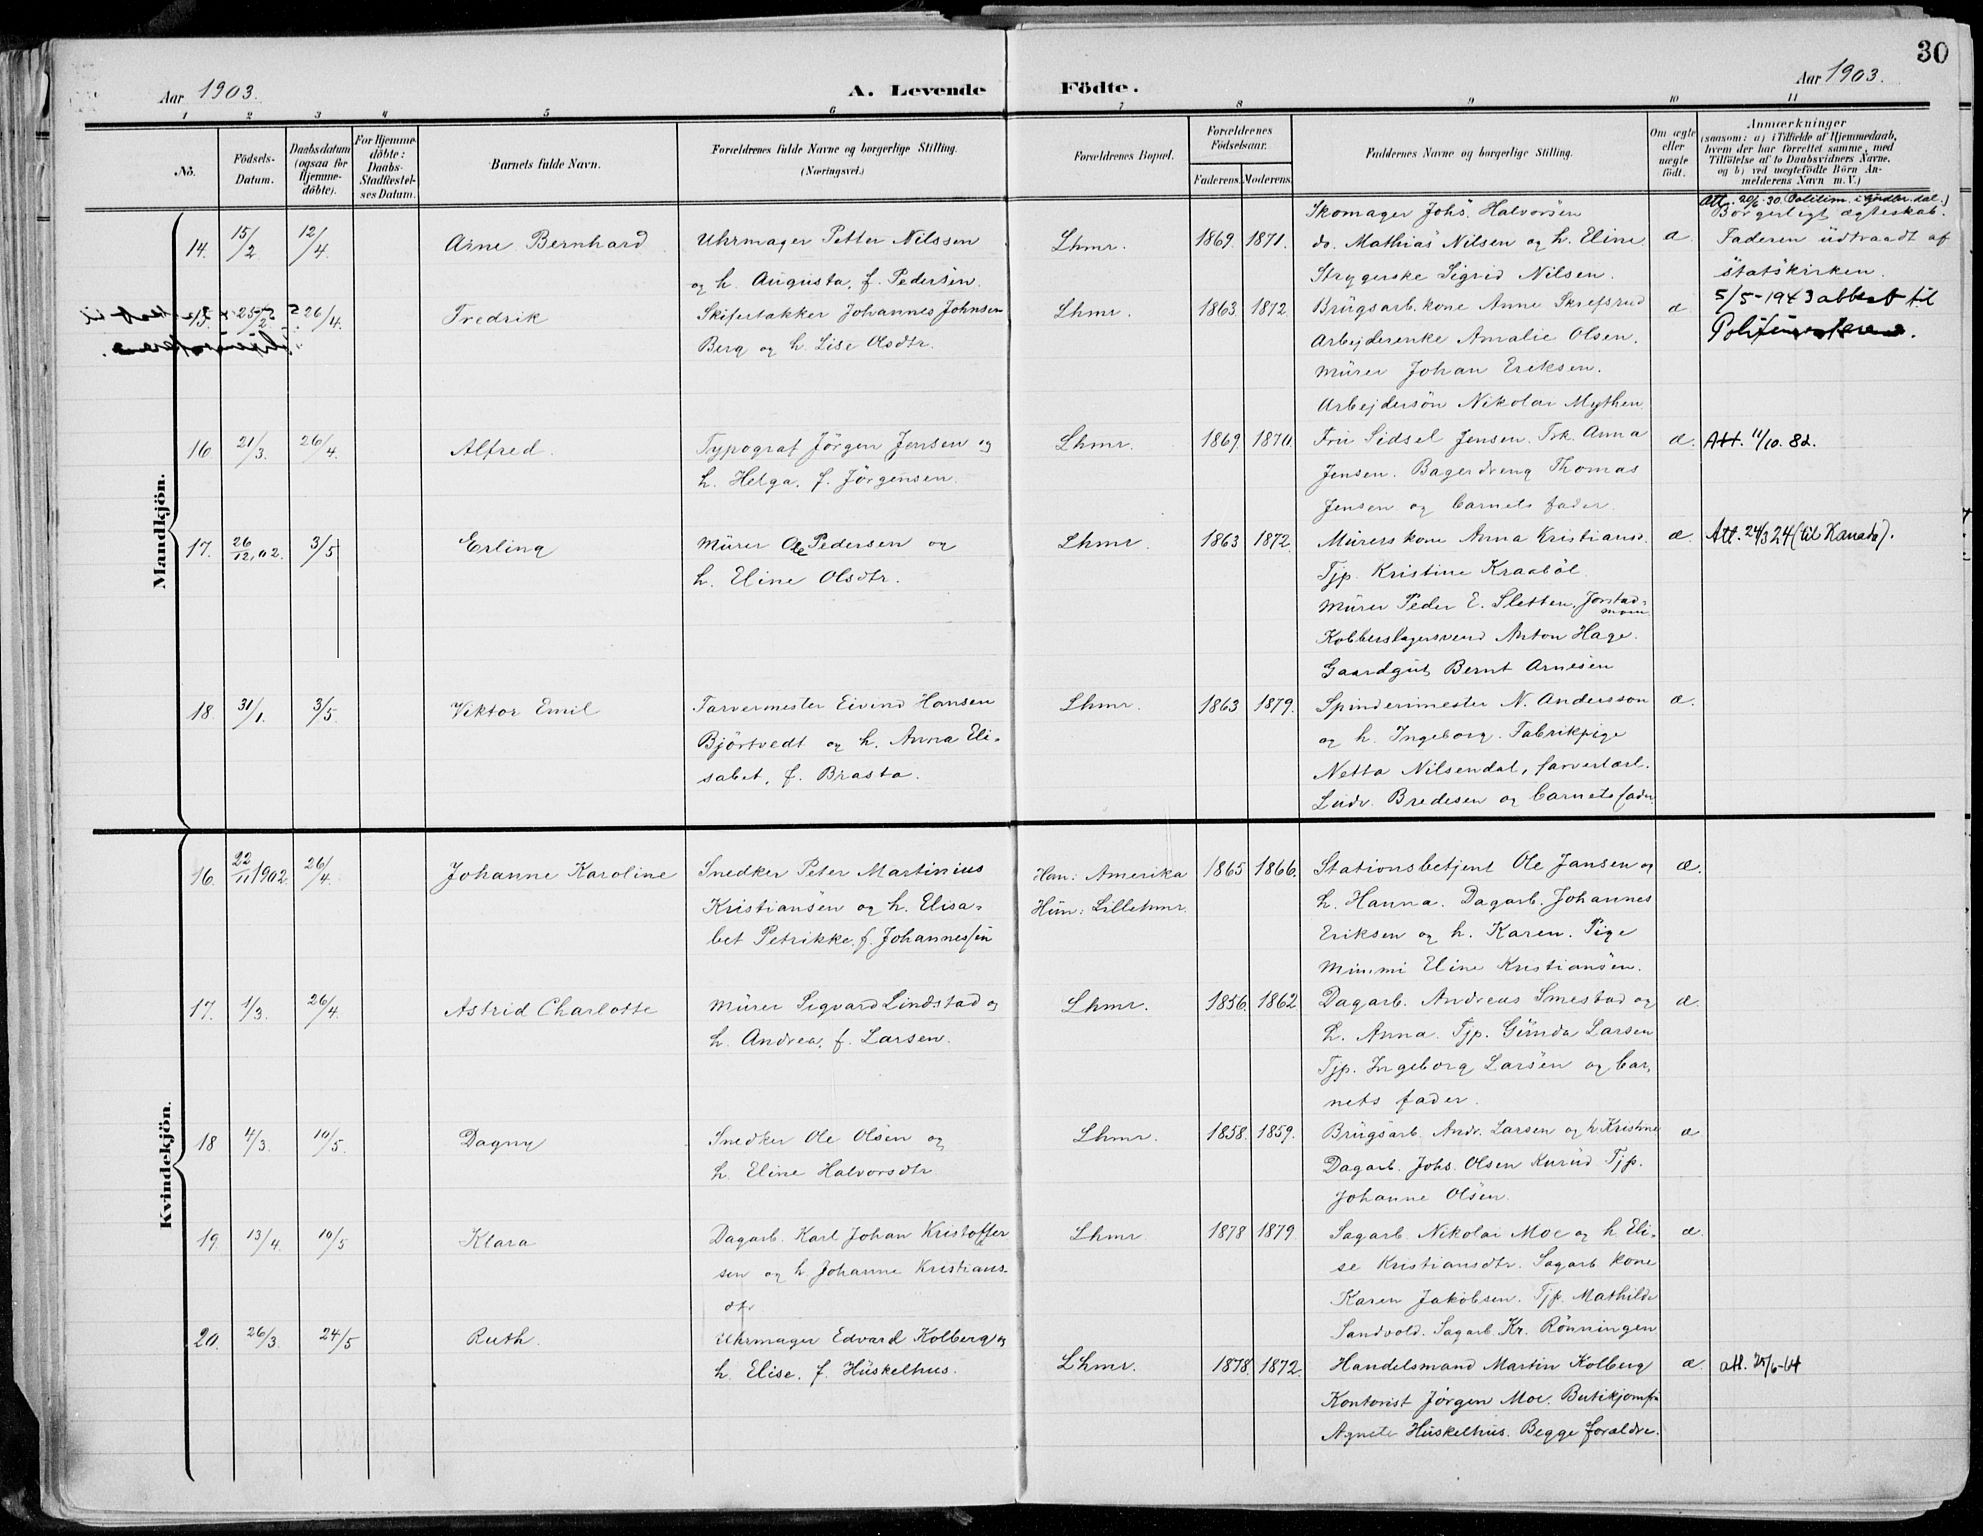 30
Aar 1903.
A. Levende Födte.
Aar 1903.
1 2 3 4 5 6 7 8 9 10 11
No.
Födsels-Datum.
Daabsdatum (ogsaa for Hjemme-döbte).
For Hjemme-döbte: Daabs-Stadfæstel-ses Datum.
Barnets fulde Navn.
Forældrenes fulde Navne og borgerlige Stilling. (Næringsvei.)
Forældrenes Bopæl.
Forældrenes Födselsaar.
Faderens. Moderens.
Faddernes Navne og borgerlige Stilling.
Om ægte eller uægte födt.
Anmærkninger
(saasom: a) i Tilfælde af Hjemmedaab,
hvem der har forrettet samme, med
Tilföielse af to Daabsvidners Navne,
og b) ved uægtefödte Börn An-
melderens Navn m. V.)
Mandkjön.
Att. 20/6-30. Politim. i Gudbr.dal.
Skomager Johs. Halvorsen Borgerligt ægteskab.
14. 15/2 12/4 Arne Bernhard Uhrmager Petter Nilssen Lhmr. 1869. 1871. do. Mathias Nilsen og h. Eline æ. Faderen udtraadt af
og h. Augusta, f. Pedersen. Strygerske Sigrid Nilsen. statskirken.
15. 25/2 26/4. Fredrik Skifertækker Johannes Johnsen Lhmr. 1863 1872 Brugsarb. kone Anne Skrefsrud æ 5/5-1943 attest til
Berg og h. Lise Olsdtr. Arbejderenke Amalie Olsen. Politimesteren.
Murer Johan Eriksen.
Arbejdersön Nikolai Mythen
16 21/3. 26/4. Alfred. Typograf Jörgen Jensen og Lhmr. 1869. 1870. Fru Sidsel Jensen. Frk. Anna æ. Att. 11/10. 82.
h. Helga, f. Jörgensen. Jensen. Bagerdreng Thomas
Jensen og barnets fader.
17. 26/12.02. 3/5 Erling Murer Ole Pedersen og Lhmr. 1863 1872. Murers kone Anna Kristiansd. æ. Att. 24/3 24 (til Kanada).
h. Eline Olsdtr. Tjp. Kristine Kraaböl.
Murer Peder E. Sletten, Jorstad-
moen
Kobberslagersvend Anton Hage.
Gaardgut Bernt Arnesen
18. 31/1. 3/5. Viktor Emil Farvermester Eivind Hansen Lhmr. 1863 1879. Spinderimester N. Andersson æ.
Björtvedt og h. Anna Eli- og h. Ingeborg. Fabrikpige
sabet, f. Brasta. Netta Nilsendal, farverlærl.
Ludv. Bredesen og barnets fader
Kvindekjön.
16. 22/11 1902. 26/4. Johanne Karoline Snedker Peter Martinius Han: Amerika 1865 1866. Stationsbetjent Ole Jansen og æ.
Kristiansen og h. Elisa- Hun: Lillehmr. h. Hanna. Dagarb. Johannes
bet Petrikke, f. Johannessen Eriksen og h. Karen. Pige
Mimmi Eline Kristiansen.
17. 1/3. 26/4. Astrid Charlotte Murer Sigvard Lindstad og Lhmr. 1856. 1862 Dagarb. Andreas Smestad og æ.
h. Andrea, f. Larsen. h. Anna. Tjp. Gunda Larsen
Tjp. Ingeborg Larsen og bar-
nets fader.
18 4/3. 10/5. Dagny Snedker Ole Olsen og Lhmr. 1858. 1859. Brugsarb. Andr. Larsen og h. Kristine æ
h. Eline Halvorsdtr. Dagarb. Johs. Olsen Kurud Tjp.
Johanne Olsen.
19. 13/4. 10/5 Klara Dagarb. Karl Johan Kristoffer Lhmr. 1878 1879. Sagarb. Nikolai Moe og h. Eli- æ.
sen og h. Johanne Kristians- se Kristiansdtr. Sagarb. kone
dtr Karen Jakobsen. Tjp. Mathilde
Sandvold. Sagarb. Kr. Rönningen
20. 26/3. 24/5 Ruth. Uhrmager Edvard Kolberg og
h. Elise, f. Huskelhus. Lhmr. 1878. 1872. Handelsmand Martin Kolberg æ. att. 25/6-64
Kontorist Jörgen Moe. Butikjomfru
Agnete Huskelhus. Begge foraldre.